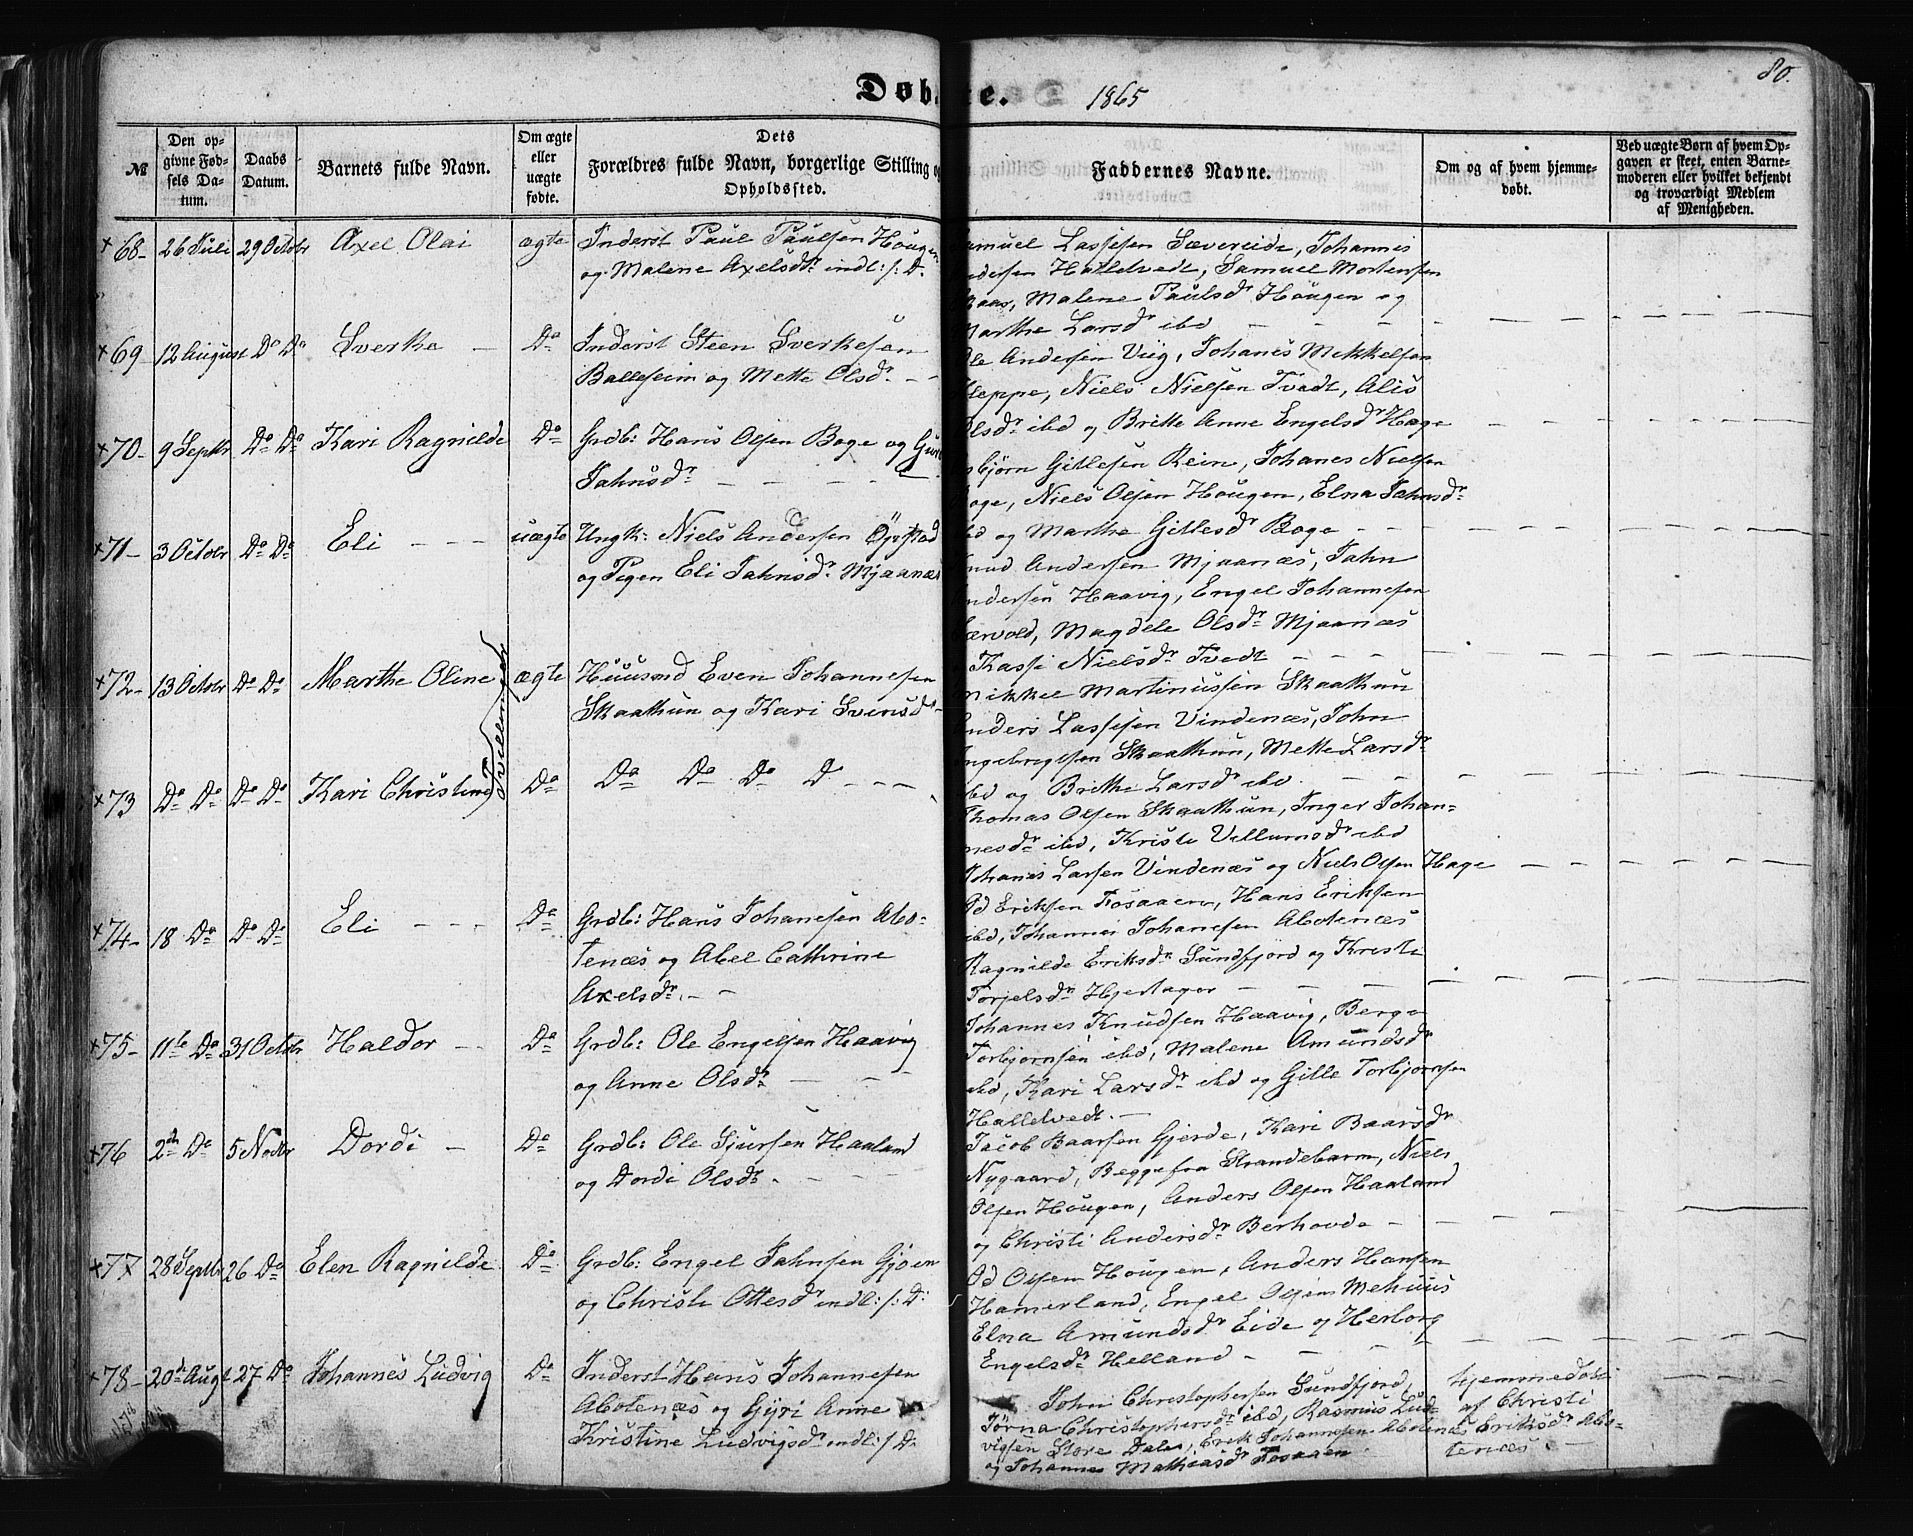 Døb e. 1865 80.
№
Den op-
givne Fød-
sels Da-
tum.
Daabs
Datum.
Barnets fulde Navn.
Om ægte
eller
uægte
fødte.
Dets
Forældres fulde Navn, borgerlige Stilling o
Opholdssted.
Faddernes Navne.
Om og af hvem hjemme-
døbt.
Ved uægte Børn af hvem Op-
gaven er skeet, enten Barne-
moderen eller hvilket bekjendt
og troværdigt Medlem
af Menigheden.
+68- 26 Juli 29 Octobr Axel Olai ægte Inderst Paul Paulsen Hougen
og Malene Axelsdr indl: s: D.
amuel Lassesen Sævereide, Johannis
ndersen Hallelvedt, Samuel Mortensen
kaar, Malene Paulsdr Hougen og
Marthe Larsdr ibd
+69- 12 August Do Do Sverke Do Inderst Steen Sverkesen
Balleseim og Mette Olsdr
Ole Andersen Viig, Johanes Mikkelsen
kleppe, Niels Nielsen Tvedt, Alis
Olsdr ibd og Britte Anne Engelsdr Hage
+70- 9 Septbr Do Do Kari Ragnilde Do Grdb: Hans Olsen Boge og Guro
Jahnsdr
sbjørn Gitlesen Rein, Johanes Nielsen
Boge, Niels Olsen Hougen, Elna Jahnsdr
ibd og Marthe Gitlesdr Boge
+71- 3 Octobr Do Do Eli uægte Ungk: Niels Andersen
og Pigen Eli Jahnsdr Mjaanæs
nud Andersen Mjaanæs, Jahn
ndersen Haavig, Engel Johannesen
ærvold, Magdele Olsdr Mjaanæs
Kassi Nielsdr Tvedt
+72- 13 Octobr Do Do Marthe Oline Tvillinger ægte Huusmd Even Johannesen
Skaathun og Kari Svensdr
Mikkel Martinussen Skaathun
Anders Lassesen Vindenæs, John
Ingebrigtsen Skaathun, Mette Larsdr
ibd og Britte Larsdr ibd
+73 Do Do Do Do Kari Christine Do Do Do Do D
Thomas Olsen Skaathun, Inger Johan-
nesdr ibd, Kristi Villumsdr ibd
Johanes Larsen Vindenæs og Niels Olsen Hage
+74- 18 Do Do Do Eli Do Grdb: Hans Johanesen Abo-
tenæs og Abel Cathrine
Axelsdr.
Od Eriksen Fosaaen, Hans Eriksen
ibd, Johannes Johanesen Abotenæs
Ragnilde Eriksdr Sundfjord og Kristi
Torjelsdr Hjertager
+75- 11te Do 31 Octobr Haldor Do Grdb: Ole Engelsen Haavig
og Anne Olsdr
Johannes Knudsen Haavig, Berge
Torbjørnsen ibd, Malene Amundsdr
ibd, Kari Larsdr ibd og Gitle Torbjørnsen
Hallelvedt.
+76 2den Do 5 Novbr Dordi Do Grdb: Ole Sjursen Haaland
og Dordi Olsdr.
Jacob Baarsen Gjerde, Kari Baarsdr
Nygaard, Begge fra Strandebarm, Niels
Olsen Hougen, Anders Olsen Haaland
og Christi Andersdr Berhovde
+77 28 Septbr 26 Do Elen Ragnilde Do Grdb: Engel Jahnsen Gjøen
og Christi Ottesdr indl: s: D:
Od Olsen Hougen, Anders Hansen
Hamerland, Engel Olsen Mehuus
Elna Amundsdr Eide og Herborg
Engelsdr Helland
+78- 20de Augt 27 Do Johannes Ludvig Do Inderst Hans Johannesen
Abotenæs og Gyri Anne
Kristine Ludvigsdr indl: s: D:
John Christophersen Sundfjord,
Jørna Christophersdr ibd, Rasmus Lud-
vigsen Store Dale, Erik Johannesen Abotenæs
og Johanne Mathiasdr Fosaaen
Hjemmedøbt
af Christi
Eriksdr Abo-
tenæs